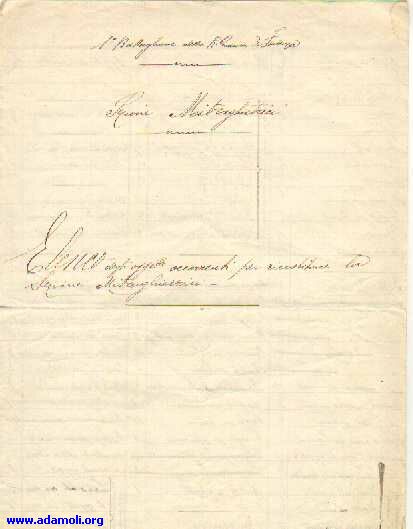 1° Battaglione della R. Guardia di Finanza
Sezione Mitragliatrici
Elenco degli oggetti occorrenti per ricostituire la
Sezione Mitragliatrici -
www.adamoli.org